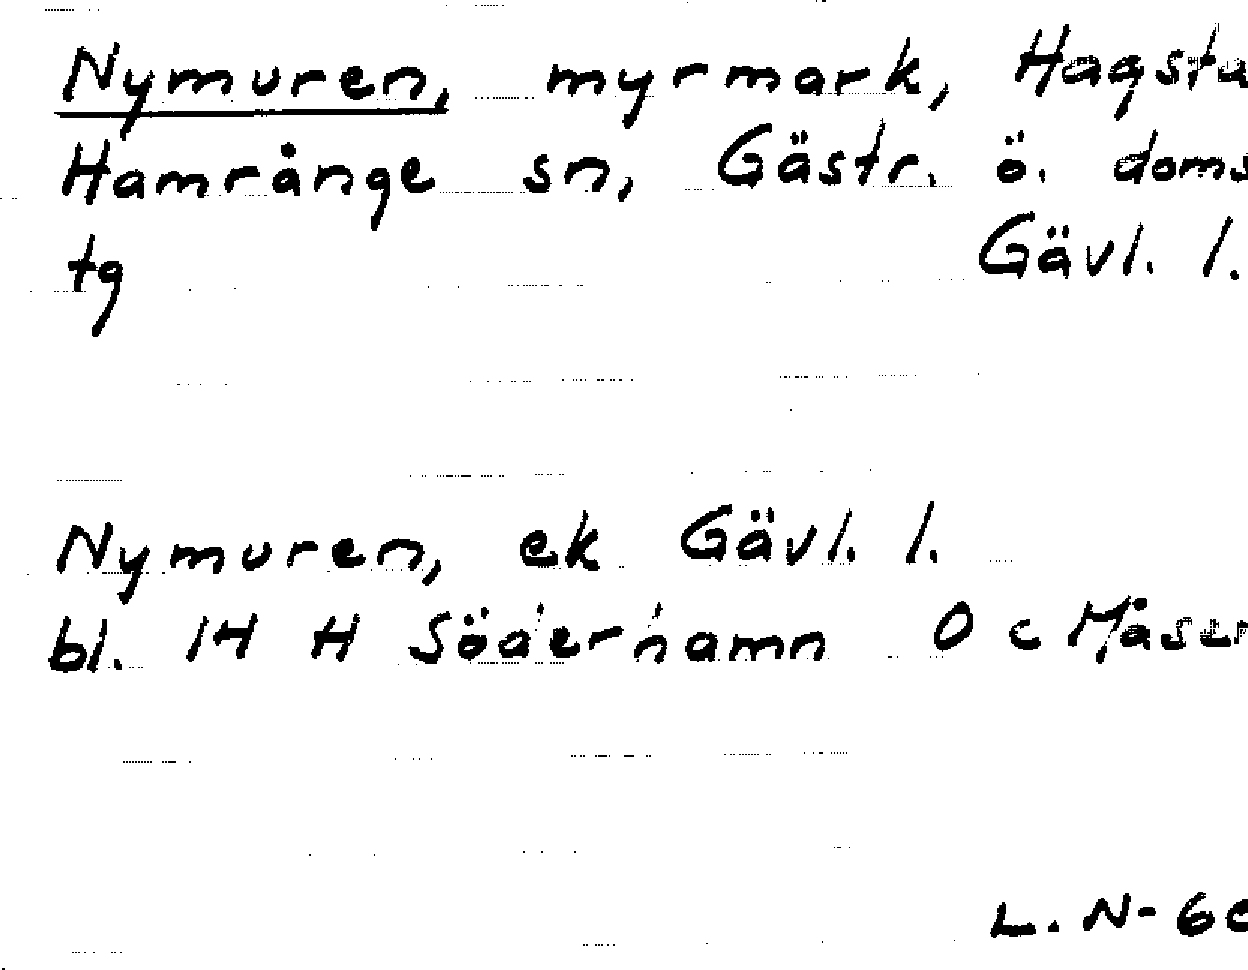 Nymuren, myrmark, Hagsta
Hamrånge sn, Gästr. ö. doms
tg Gävl. l.
Nymuren, ek Gävl. l.
bl. 14 H Söderhamn 0 c
L. N-60